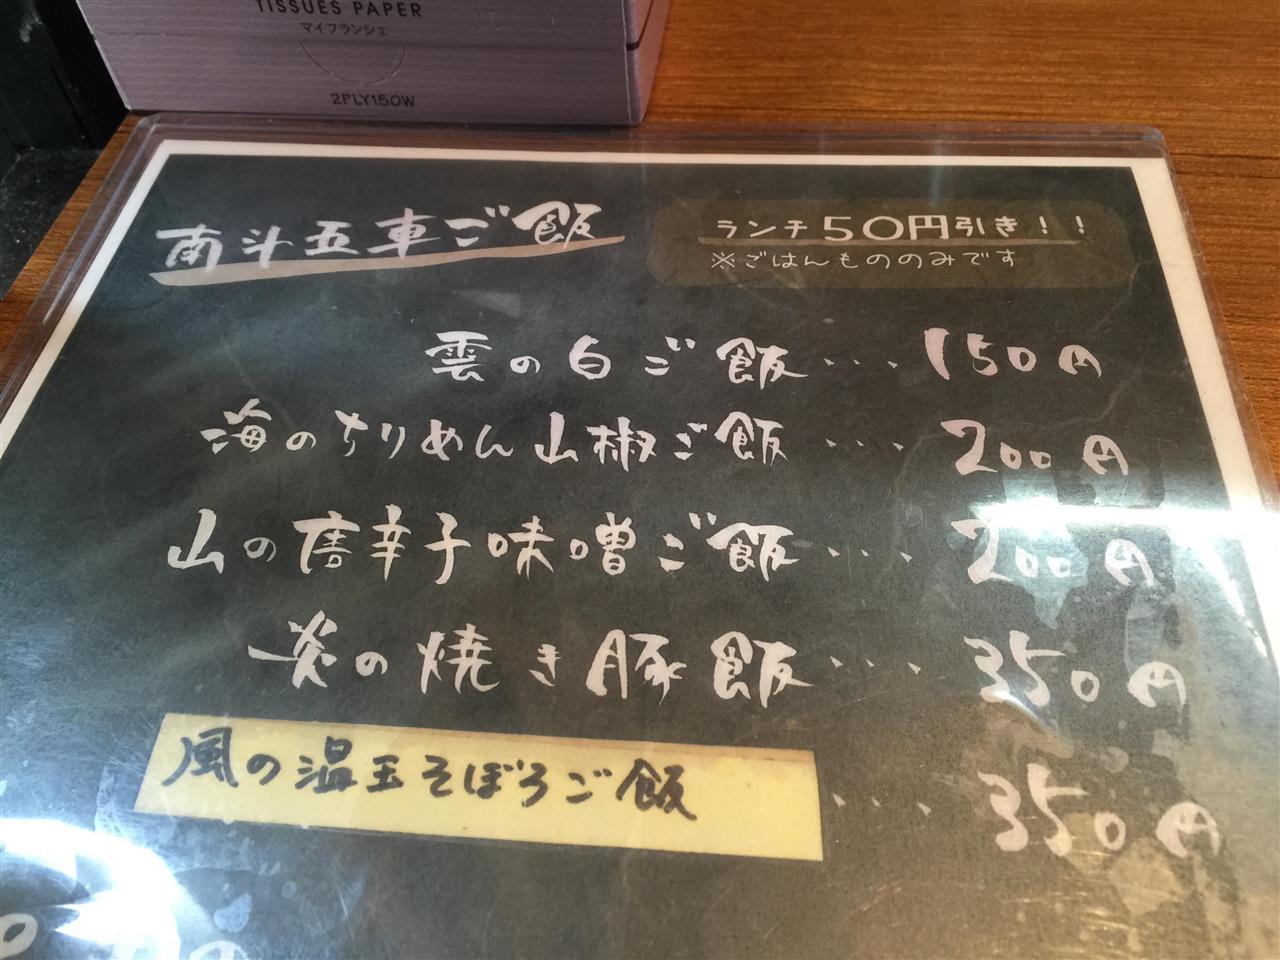 TISSUES PAPER
マイフランシェ
2PLY150W
南斗五車ご飯
ランチ50円引き!!
※ごはんもののみです
雲の白ご飯・・・150円
海のちりめん山椒ご飯・・・200円
山の唐辛子味噌ご飯・・・200円
炎の焼き豚飯・・・350円
風の温玉そぼろご飯・・・350円